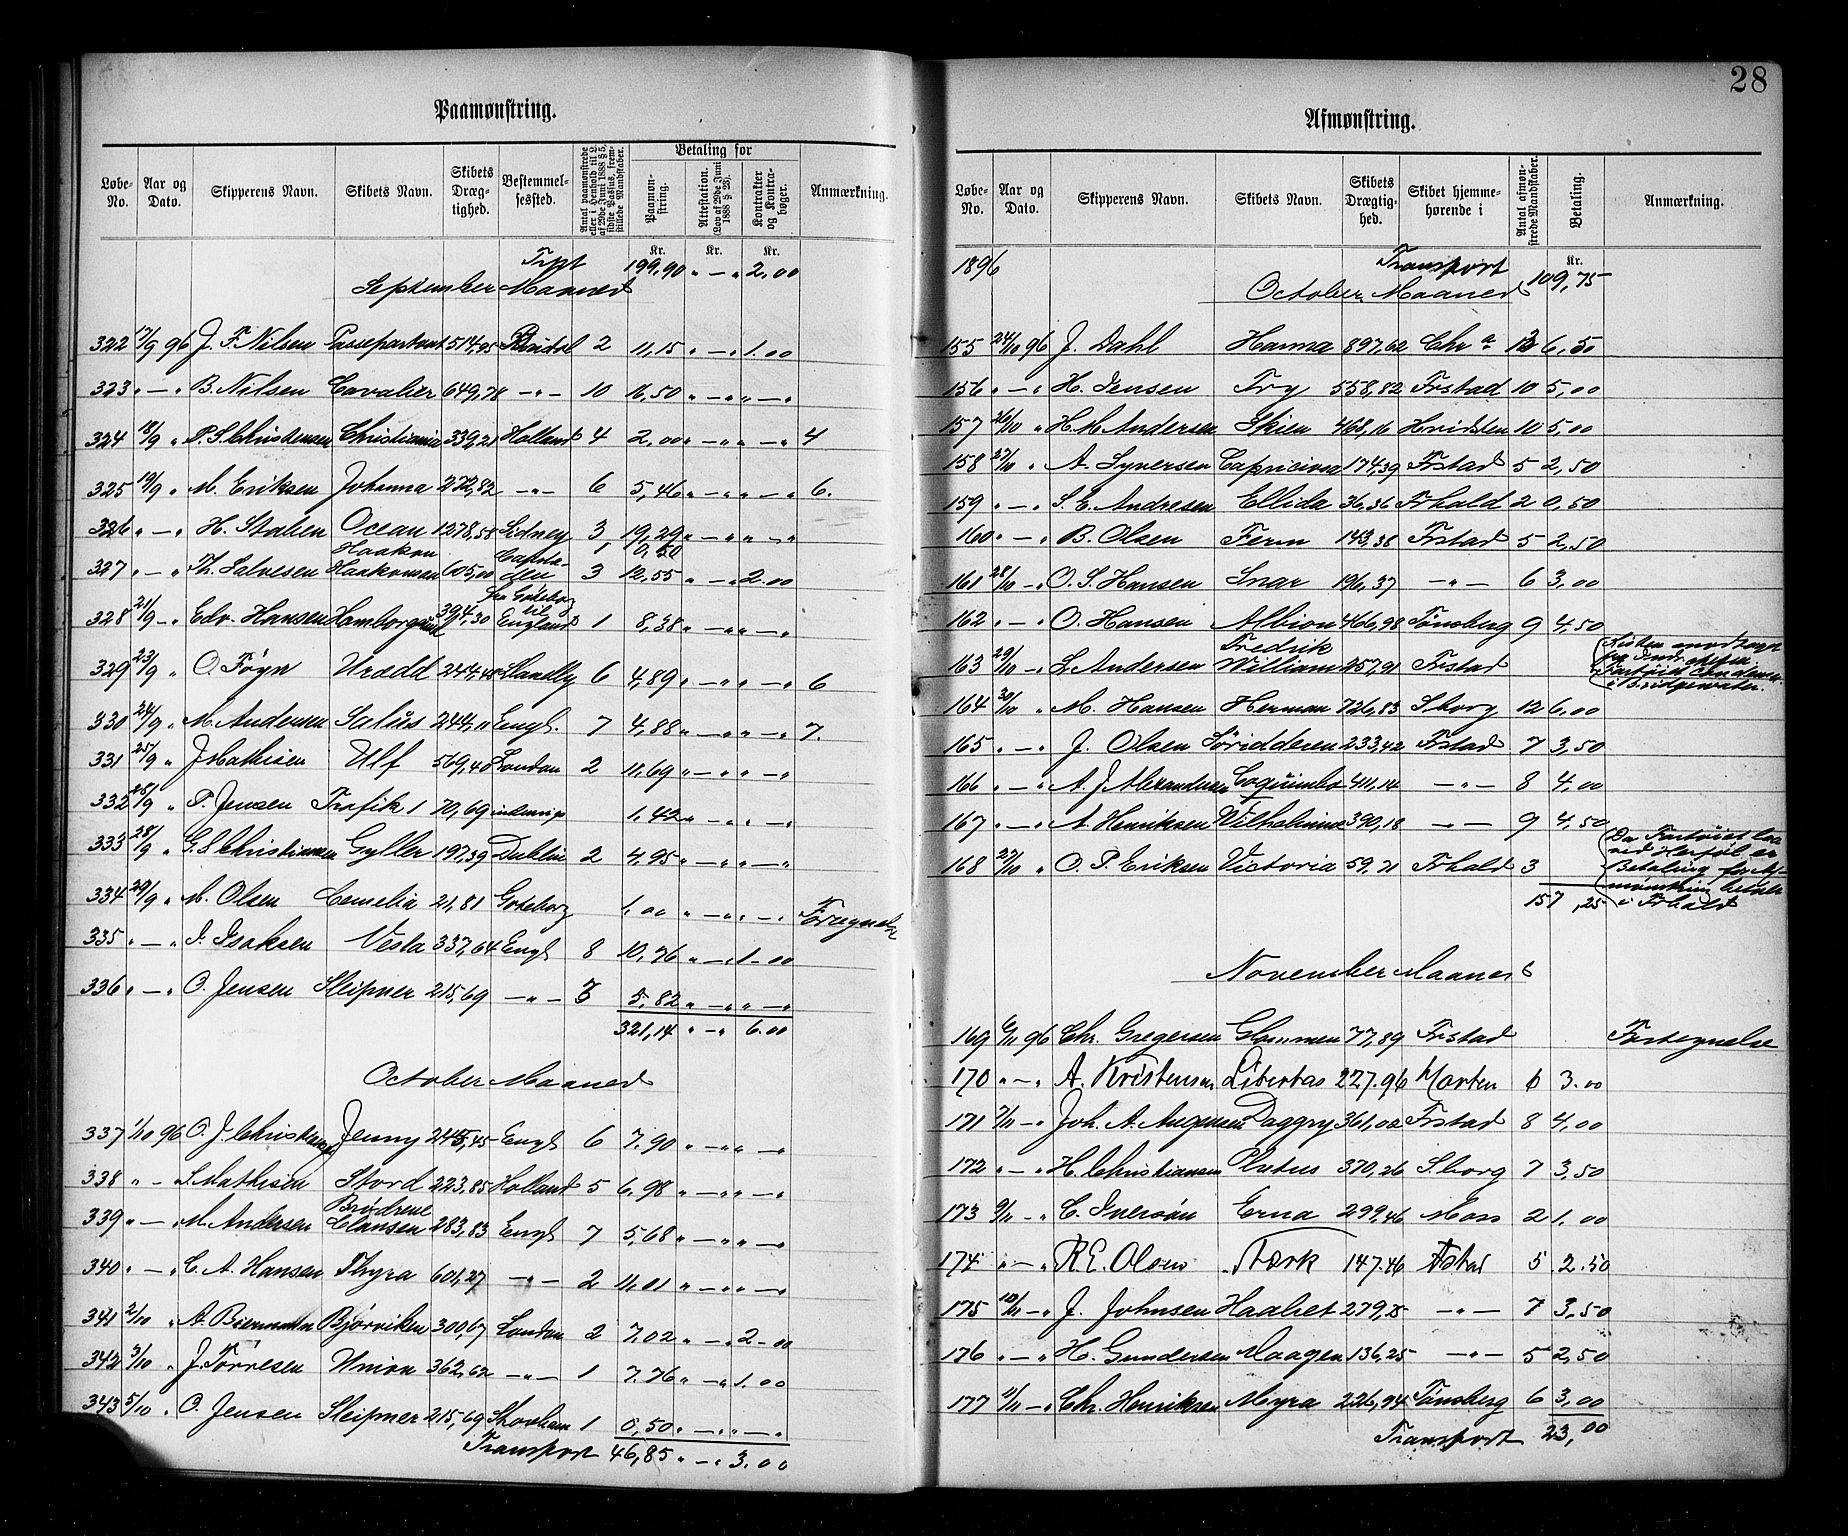 28
Paamønstring.
Løbe-No. | Aar og Dato. | Skipperens Navn. | Skibets Navn. | Skibets Drægtighed. | Bestemmelsessted. | Antal paamønstrede eller i Henhold til L. af 29de Juni 1888 § 5, sidste Passus, fremstillede Mandskaber. | Betaling for | Paamønstring. | Attestation. (Lov af 29de Juni 1888 § 28). | Kontrakter og Kontrabøger. | Anmærkning.
Kr. Kr. Kr.
Trpt 199,90 " — " 2,00
September Maaned
322 17/9 96 J. F. Nilsen Passepartout 514,95 Bristol 2 11,15 " — " 1.00
323 " — " B. Nilsen Cavalier 649,78 — " — 10 16,50 " — " " — "
324 18/9 " P. S. Christensen Christiania 339,21 Holland 4 2,00 " — " " — " 4
325 19/9 " M. Eriksen Johanna 272,82 — " — 6 5,46 " — " " — " 6.
326 " — " H. Staben Ocean 1278,58 Sidney 3 19,29 " — " " — "
1 0,50
327 " — " Th. Salvesen Haakon Haakonsen 605,00 3 12,55 " — " 2.00
328 21/9 — " Edv. Hansen 394,30 fra Göteborg til England 1 8,38 " — " " — "
329 23/9 " O. Føyn Urædd 244,48 Llanelly 6 4,89 " — " " — " 6
330 24/9 " M. Andersen Salus 244,11 Engl. 7 4,88 " — " " — " 7.
331 25/9 " J Mathisen Ulf 569,40 London 2 11,69 " — " " — "
332 28/9 " P. Jensen Trafik 1 70,69 indenrigs 1,42 " — " " — "
333 28/9 " G. S Christiansen Gyller 197,39 Dublin 2 4.95 " — " " — "
334 29/9 " M. Olsen Camelia 21,81 Goteborg 1.00 " — " " — "
335 " — " I. Isaksen Vesta 337,64 Engl 8 10,76 " — " 1-00
336 " — " O. Jensen Sleipner 215,69 — " — 3 5,82 " — " " — "
321,14 " — " 6.00
October Maaned
337 1/10 96 O. J. Christiansen Jenny 245,45 Engl 6 7.90 " — " " — "
338 " — S. Mathisen Stord 223,85 Holland 5 6,98 " — " " — "
339 " — " M. Andersen Brødrene Clausen 283,83 Engl 7 5,68 " — " " — "
340 " — " C. A. Hansen Thyra 601,27 — " — 2 11,01 " — " " — "
341 2/10 " A. Biermann Bjørviken 300,67 London 2 7.02 " — " 2-00
342 3/10 " J. Tørresen Union 362,62 — " — 1 7.76 " — " 1.00
343 5/10 " O. Jensen Sleipner 215,69 1 0,50 " — " " — "
Transport 46,85 " — " 3.00
Afmønstring.
Løbe-No. | Aar og Dato. | Skipperens Navn. | Skibets Navn. | Skibets Drægtighed. | Skibet hjemmehørende i | Antal afmønstrede Mandskaber. | Betaling. | Anmærkning.
Kr.
1896 Transport 109,75
October Maaned
155 24/10 96 J. Dahl Hanna 897,62 Chr a 13 6,50
156 " — " H. Jensen Fry 558,82 Frstad 10 5,00
157 26/10 " H. M Andersen Skien 468,16 Hvidsten 10 5,00
158 27/10 " A. Syversen 174,39 Frstad 5 2,50
159 " — " S. E. Andresen Ellida 36,36 Frhald 2 0,50
160 " — " B. Olsen Ferm 143,38 Frstad 5 2,50
161 28/10 — " O. S. Hansen Snar 196,37 — " — 6 3,00
162 " — " O. Hansen Albion 466,98 Tønsberg 9 4,50
163 29/10 — " L. Andersen Fredrik William 257,91 Frstad
i Bridgewater.
164 30/10 " M. Hansen Herman 726,83 Sborg 12 6,00
165 " — " J. Olsen Søridderen 233,42 Frstad 7 3,50
166 " — " A. J. Alexandersen Coquimbo 411,14 — " — 8 4,00
167 " — " A. Henriksen Wilhelmine 390,18 — " — 9 4,50
168 27/10 " O. P. Eriksen Victoria 59,71 Frhald 3
Da Fartøiet laa ved Herføl er Betaling for Afmønstring betalt i Frhald
157,25
November Maaned
169 6/11 96 Chr. Gregersen Glommen 77,89 Frstad
170 " — " A. Kristensen Libertas 227.96 Marten 6 3.00
171 7/11 — " Joh. A. Augensen Daggry 361,02 Frstad 8 4,00
172 " — " H. Christiansen Plutus 370,26 Sborg 7 3,50
173 9/11 — " C. Iversøn Erna 299,46 Moss 2 1.00
174 " — " R E. Olsen Stærk 147.46 Fstad 5 2.50
175 10/11 — " J. Johnsen Haabet 279,75 — " — 7 3,50
176 " — " H. Gundersen Maagen 136,25 — " — 5 2,50
177 11/11 — " Chr. Henriksen Myra 226,94 Tønsberg 6 3,00
Transport 23,00